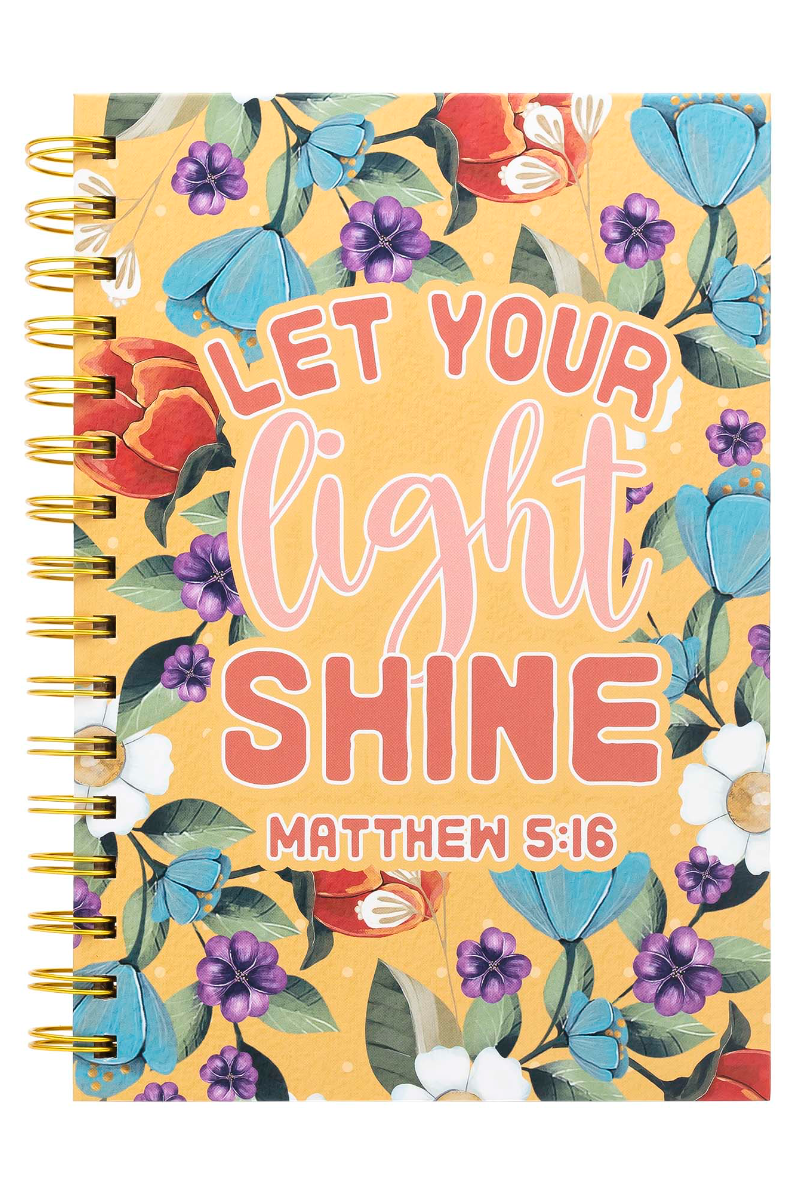 LET YOUR
light
SHINE
MATTHEW 5:16